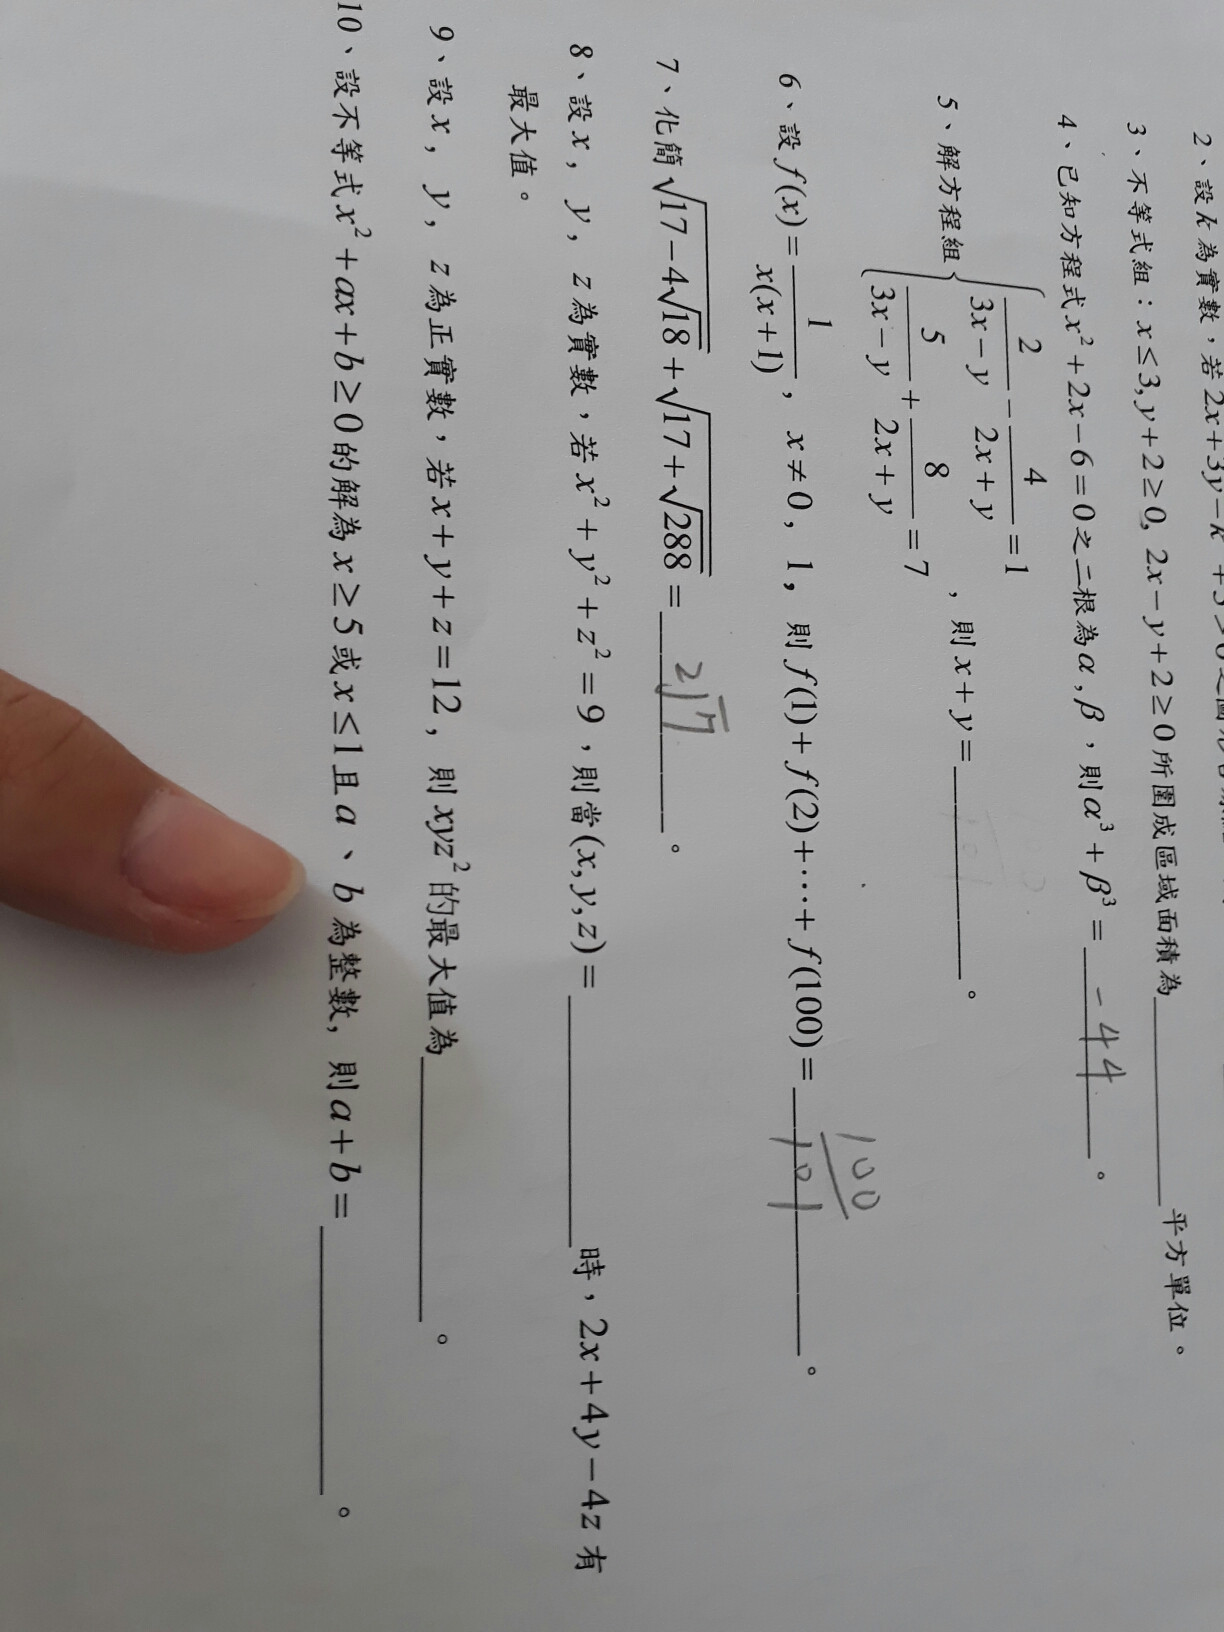 2、設k為實數，若2x+3y-k
3、不等式組：x≤3, y+2≥0, 2x-y+2≥0所圍成區域面積為______平方單位。
4、已知方程式x²+2x-6=0之二根為α,β，則α³+β³=-44。
5、解方程組{2/(3x-y) - 4/(2x+y) =1
5/(3x-y) + 8/(2x+y) =7，則x+y=______。
6、設f(x)=1/(x(x+1))，x≠0，1，則f(1)+f(2)+⋯+f(100)=100/101。
7、化簡√(17-4√18)+√(17+√288)=2√17。
8、設x，y，z為實數，若x²+y²+z²=9，則當(x,y,z)=______時，2x+4y-4z有
最大值。
9、設x，y，z為正實數，若x+y+z=12，則xyz²的最大值為______。
10、設不等式x²+ax+b≥0的解為x≥5或x≤1且a、b為整數，則a+b=______。